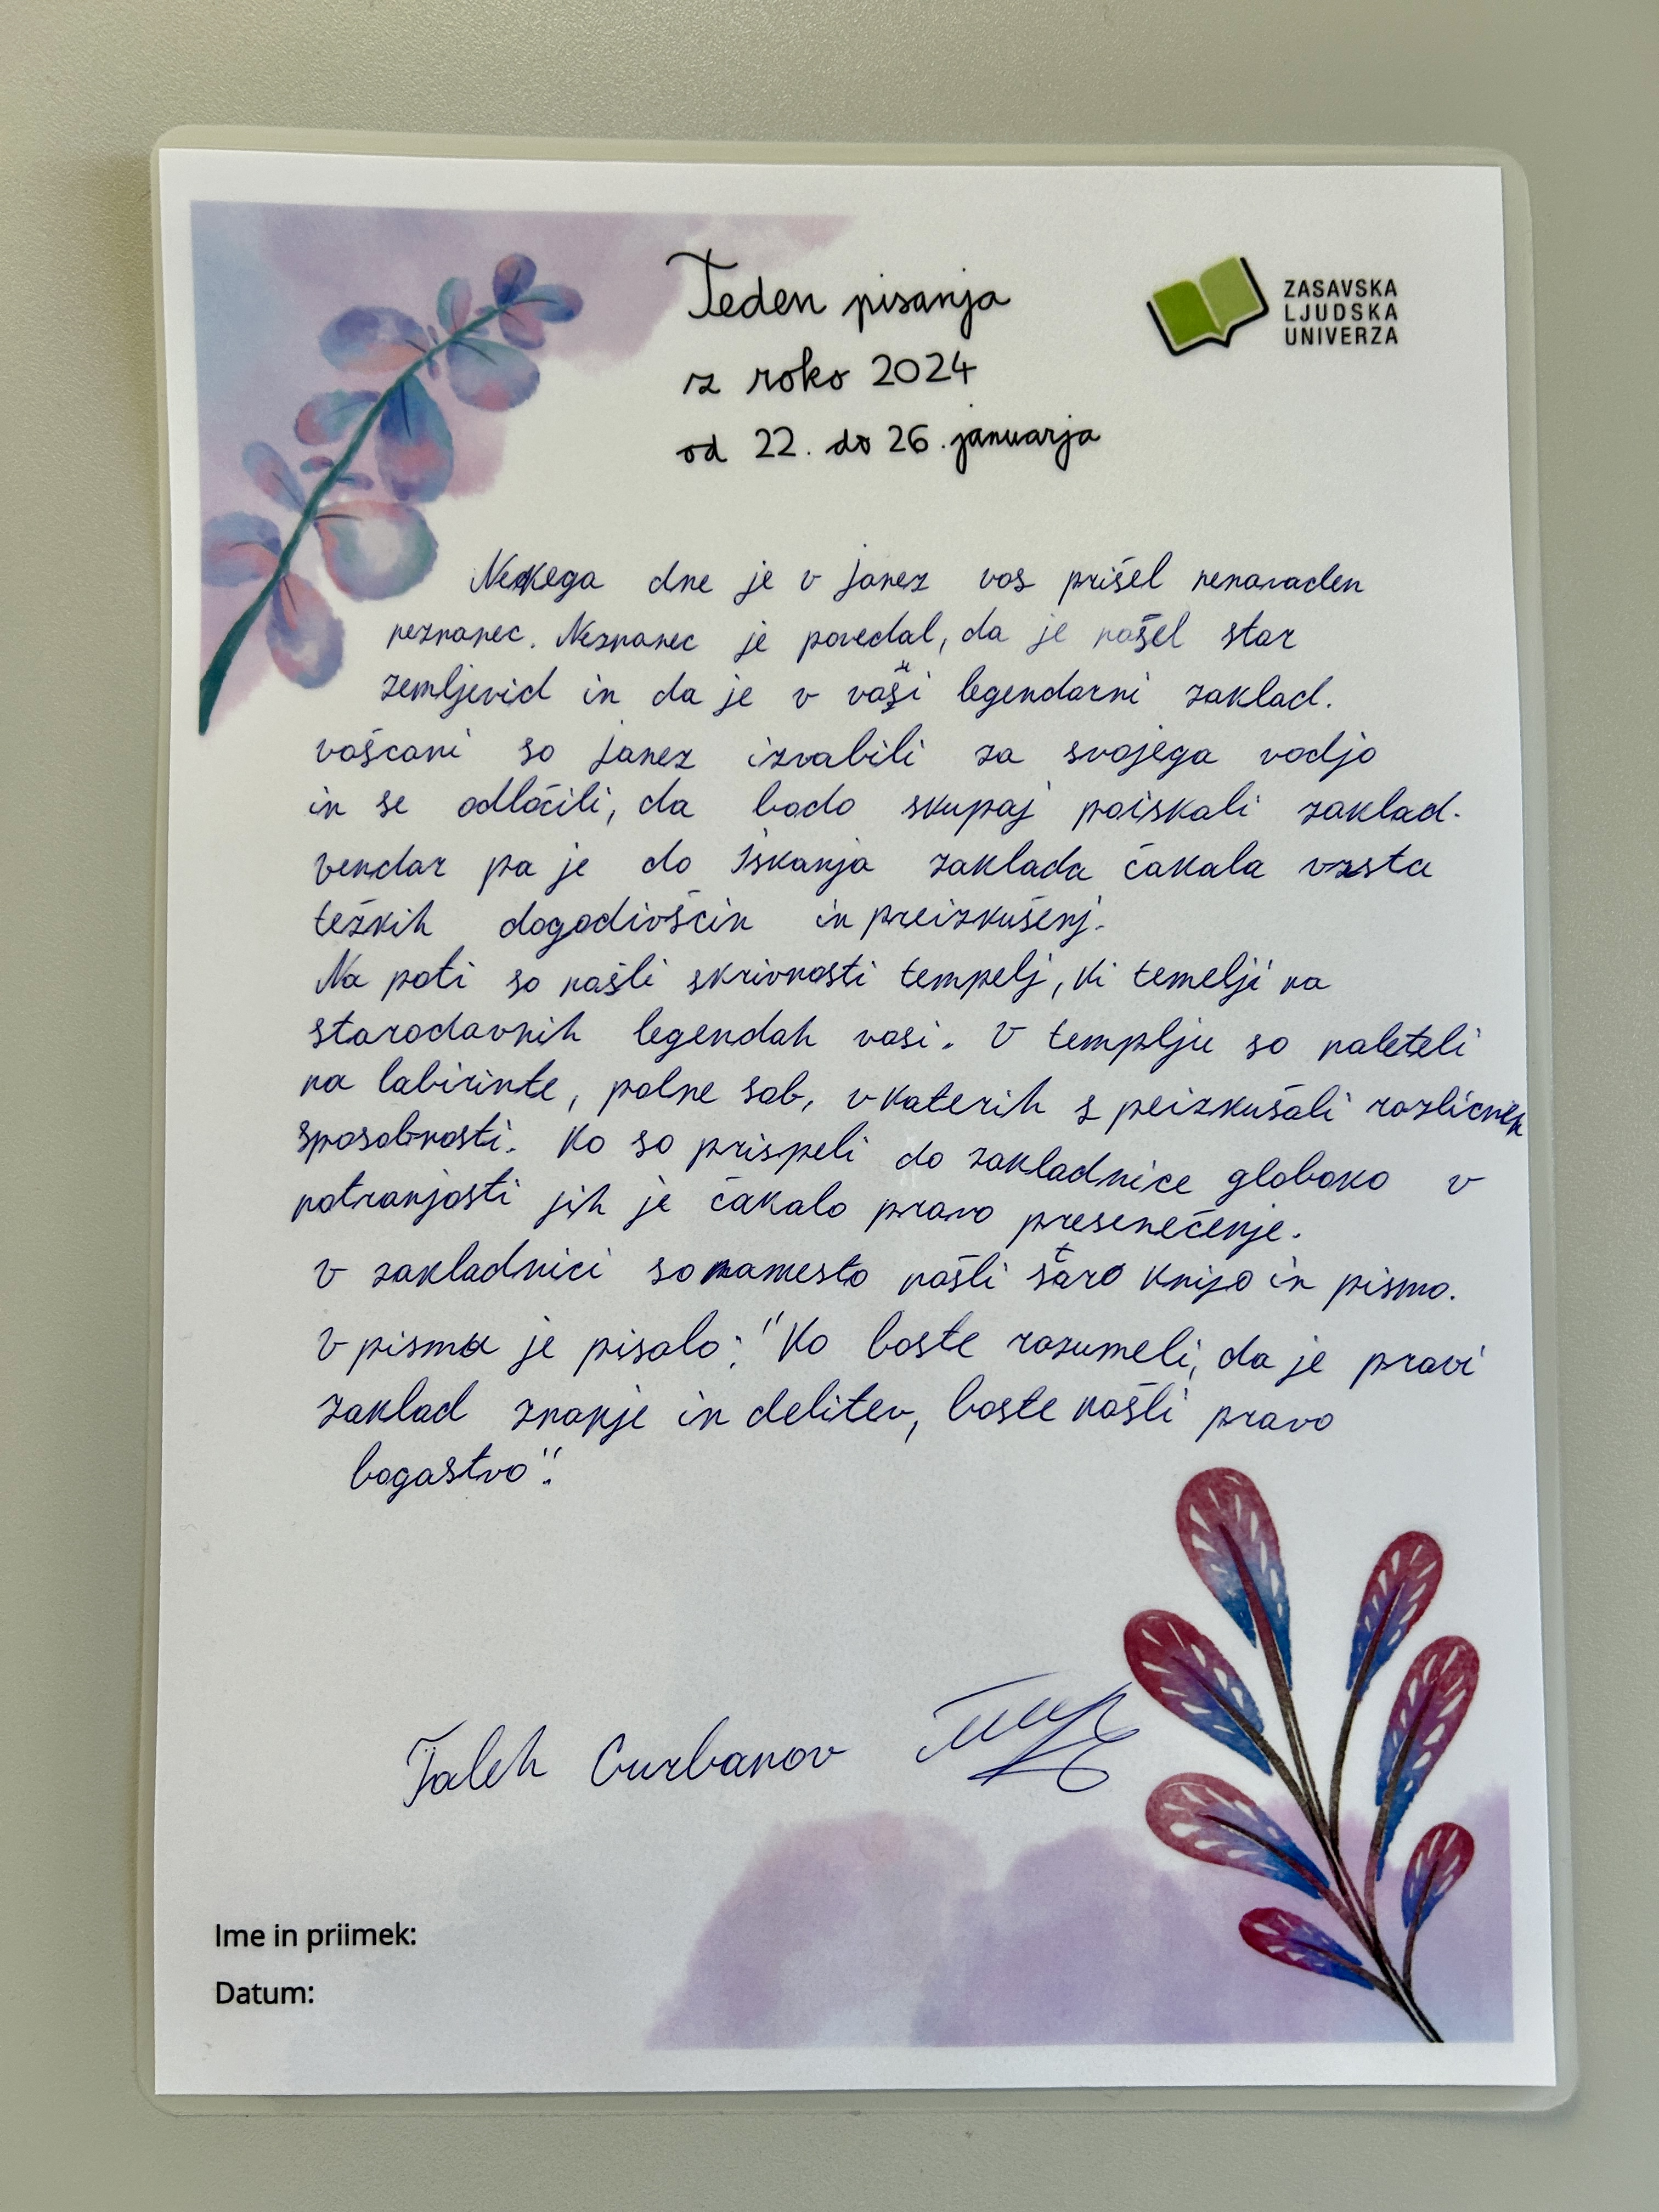 Teden pisanja
z roko 2024
od 22. do 26. januarja
ZASAVSKA
LJUDSKA
UNIVERZA
Nekega dne je v janez vas prišel nenavaden
neznanec. Neznanec je povedal, da je našel star
zemljevid in da je v vaši legendarni zaklad.
vaščani so janez izvabili za svojega vodjo
in se odločili, da bodo skupaj poiskali zaklad.
vendar pa je do iskanja zaklada čakala vrsta
težkih dogodivščin in preizkušenj.
Na poti so našli skrivnosti tempelj, ki temelji na
starodavnih legendah vasi. V templju so naleteli
na labirinte, polne sob, v katerih s peizkušali različnih
sposobnosti. Ko so prispeli do zakladnice globoko v
notranjosti jih je čakalo pravo presenečenje.
v zakladnici so namesto našli staro knjigo in pismo.
V pismu je pisalo: "Ko boste razumeli, da je pravi
zaklad znanje in delitev, boste našli pravo
bogastvo".
Taleh Gurbanov
Ime in priimek:
Datum: